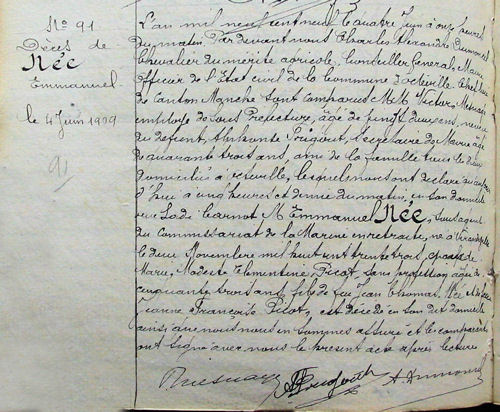 No 91
Décès de
Née
Emmanuel
le 4 Juin 1909
91
L'an mil neuf cent neuf le quatre Juin à onze heures
du matin. Par devant nous Charles Alexandre Dumoncel
Chevalier du mérite agricole, Conseiller Général, Maire
Officier de l'Etat civil de la Commune d'Octeville, Chef lieu
de Canton Manche sont comparus MM Victor
employé de Sous Préfecture, âgé de vingt deux ans, neveu
du défunt, Alphonse Prigout, Secrétaire de Mairie âgé
de quarante trois ans, ami de la famille tous les deux
domiciliés à Octeville, lesquels nous ont déclaré qu'aujour
d'hui à cinq heures et demie du matin, en son domicile
rue Sadi Carnot M. Emmanuel Née, Sous agent
du Commissariat de la Marine en retraite, né à
le deux Novembre mil huit cent trente trois, époux de
Marie, Modeste Clémentine Picot, sans profession âgée de
cinquante trois ans, fils de feu Jean Thomas Née et de
Jeanne Françoise Picot, est décédé en son dit domicile
ainsi que nous nous en sommes assuré et les comparants
ont signé avec nous le présent acte après lecture
A. Dumoncel